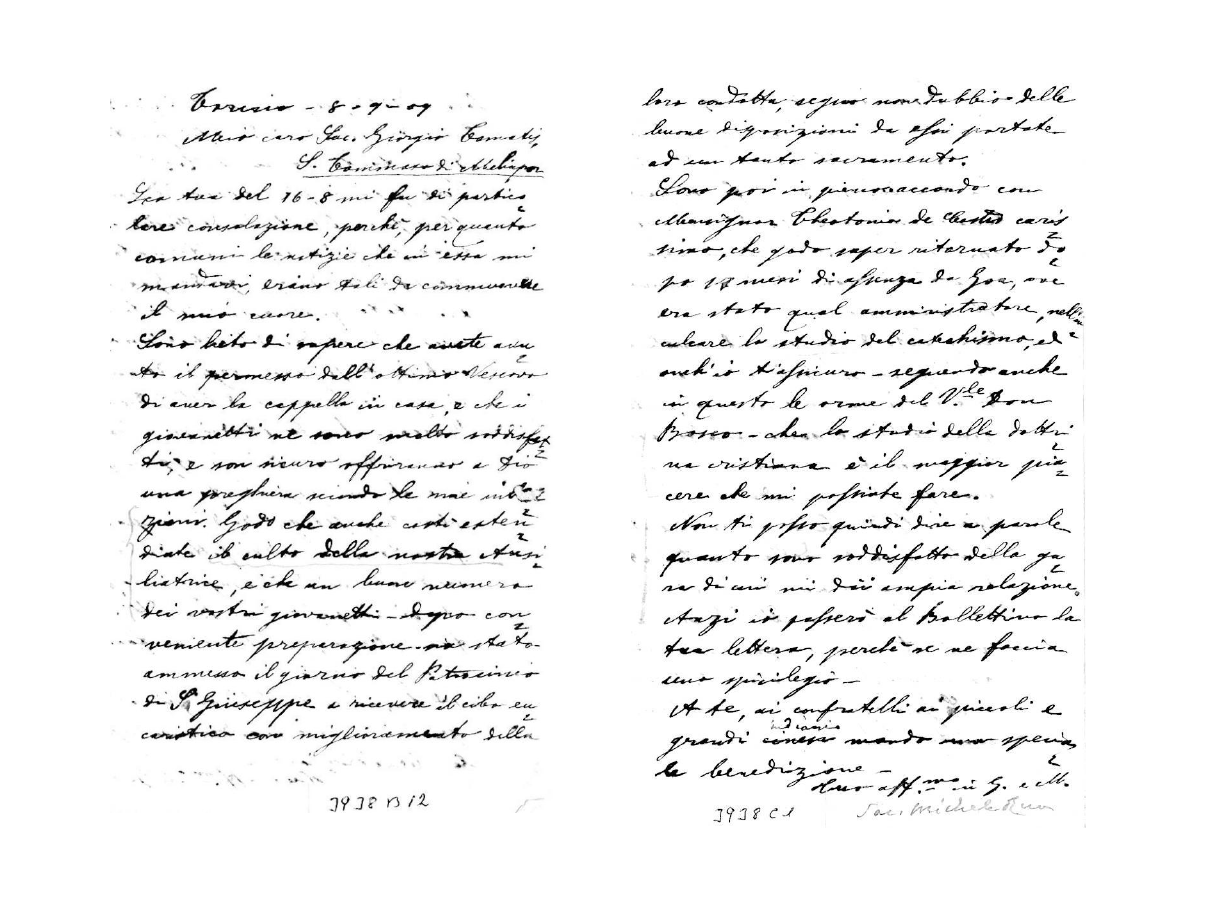 Torino - 8 - 9 - 09
Mio caro Sac. Giorgio Tomatis,
S. Tommaso di Meliapor
La tua del 16-8 mi fu di partico
lare consolazione, perchè, per quanto
comuni le notizie che in essa mi
mandavi, erano tali da commuovere
il mio cuore.
Sono lieto di sapere che avete avu
to il permesso dall'ottimo Vescovo
di aver la cappella in casa, e che i
giovanetti ne sono molto soddisfat
ti, e son sicuro offriranno a Dio
una preghiera secondo le mie inten
zioni. Godo che anche costì esten
diate il culto della nostra Ausi
liatrice, e che un buon numero
dei vostri giovanetti - dopo con
veniente preparazione - sia stato
ammesso il giorno del Patrocinio
di S. Giuseppe a ricevere il cibo eu
caristico con miglioramento della
3938 B 12
loro condotta, segno non dubbio delle
buone disposizioni da essi portate
ad un tanto sacramento.
Sono poi in pieno accordo con
Monsignor Theotonio de Castro caris
simo, che godo saper ritornato do
po 17 mesi di assenza da Goa, ove
era stato qual amministratore, nell'in
culcare lo studio del catechismo, ed
anch'io t'assicuro - seguendo anche
in questo le orme del V.le Don
Bosco - che lo studio della dottri
na cristiana è il maggior pia
cere che mi possiate fare.
Non ti posso quindi dire a parole
quanto sono soddisfatto della ga
ra di cui mi dai ampia relazione.
Anzi io passerò al Bollettino la
tua lettera, perchè se ne faccia
uno spicilegio -
A te, ai confratelli ai piccoli e
indiani
grandi cinesi mando una specia
le benedizione -
Tuo aff.mo in G. e M.
Sac. Michele Rua
3938 C 1